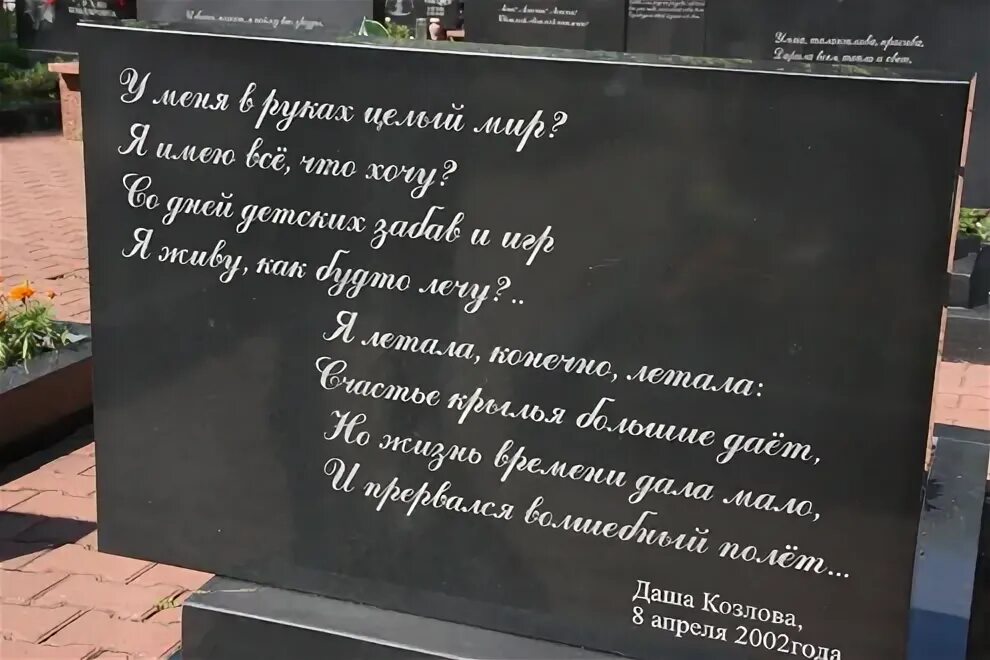 Умна, талантлива, красива,
У меня в руках целый мир?
Я имею всё, что хочу?
Со дней детских забав и игр
Я живу, как будто лечу?..
Я летала, конечно, летала:
Счастье крылья большие даёт,
Но жизнь времени дала мало,
И прервался волшебный полёт...
Даша Козлова,
8 апреля 2002года